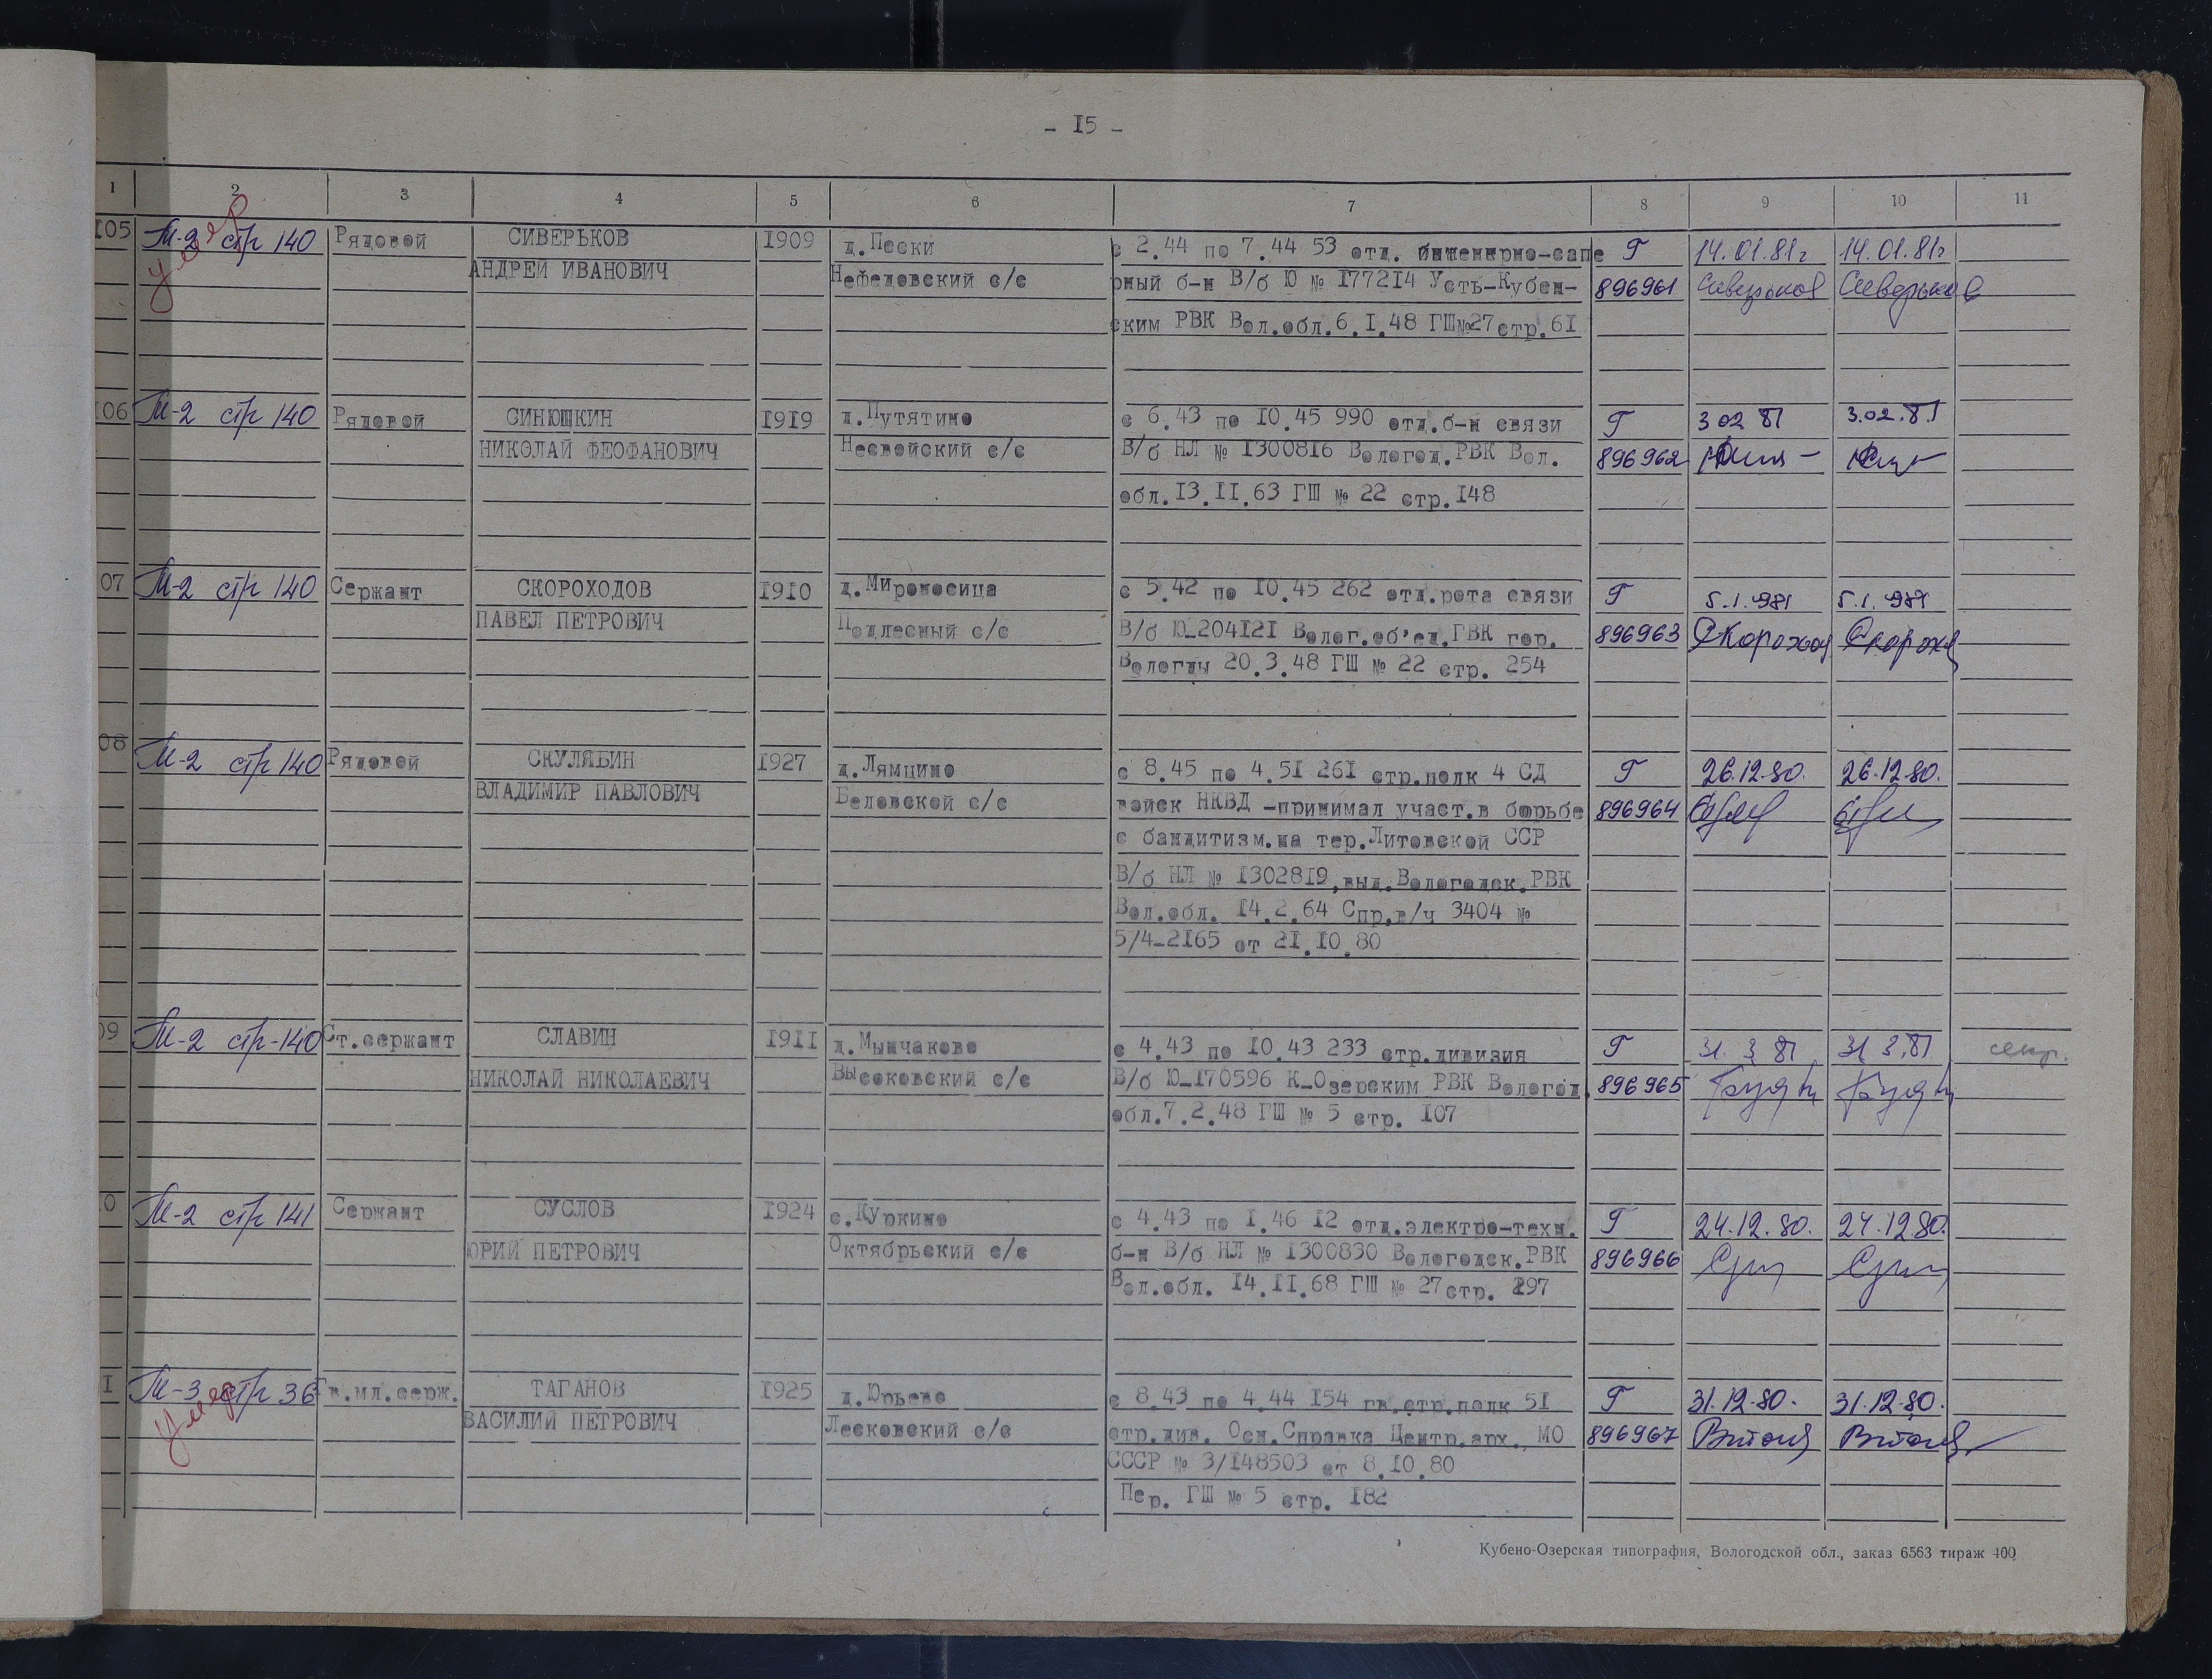 - I5 -
1 2 3 4 5 6 7 8 9 10 11
I05 М-2 стр 140 Рядовой СИВЕРЬКОВ I909 д.Пески с 2.44 по 7.44 53 отд. инженерно-сапе Г 14.01.81г 14.01.81г
умер
АНДРЕЙ ИВАНОВИЧ Нефедовский с/с рный б-н В/б Ю № I772I4 Усть-Кубен- 896961 Сиверьков Сиверьков
ским РВК Вол.обл.6.I.48 ГШ№27стр.6I
06 М-2 стр 140 Рядовой СИНЮШКИН I9I9 д.Путятино с 6.43 по I0.45 990 отд.б-н связи Г 3 02 81 3.02.81
НИКОЛАЙ ФЕОФАНОВИЧ Несвойский с/с В/б НЛ № I3008I6 Вологод.РВК Вол. 896962
обл.I3.II.63 ГШ № 22 стр.I48
07 М-2 стр 140 Сержант СКОРОХОДОВ I9I0 д.Мироносица с 5.42 по I0.45 262 отд.рота связи Г 5.1.1981 5.1.1981
ПАВЕЛ ПЕТРОВИЧ Подлесный с/с В/б Ю-204I2I Волог.об'ед.ГВК гор. 896963 Скороход Скорохо
Вологды 20.3.48 ГШ № 22 стр. 254
08 М-2 стр 140 Рядовой СКУЛЯБИН I927 д.Лямцино с 8.45 по 4.5I 26I стр.полк 4 СД Г 26.12.80. 26.12.80.
ВЛАДИМИР ПАВЛОВИЧ Беловской с/с войск НКВД -принимал участ.в борьбе 896964
с бандитизм.на тер.Литовской ССР
В/б НЛ № I3028I9,выд.Вологодск.РВК
Вол.обл. I4.2.64 Спр.в/ч 3404 №
5/4-2I65 от 2I.I0.80
09 М-2 стр-140 Ст.сержант СЛАВИН I9II д.Мынчаково с 4.43 по I0.43 233 стр.дивизия Г 31. 3 81 31 3.81 секр.
НИКОЛАЙ НИКОЛАЕВИЧ Высоковский с/с В/б Ю-I70596 К-Озерским РВК Вологод. 896965
обл.7.2.48 ГШ № 5 стр. I07
0 М-2 стр 141 Сержант СУСЛОВ I924 с.Куркино с 4.43 по I.46 I2 отд.электро-техн. Г 24.12.80. 24.12.80.
ЮРИЙ ПЕТРОВИЧ Октябрьский с/с б-н В/б НЛ № I300830 Вологодск.РВК 896966
Вол.обл. I4.II.68 ГШ № 27стр. 297
I М-3 стр 36 Гв.мл.серж. ТАГАНОВ I925 д.Юрьево с 8.43 по 4.44 I54 гв.стр.полк 5I Г 31.12.80. 31.12.80.
умер
ВАСИЛИЙ ПЕТРОВИЧ Лесковский с/с стр.див. Осн.Справка Центр.арх. МО 896967
СССР № 3/I48503 от 8.I0.80
Пер. ГШ № 5 стр. I82
Кубено-Озерская типография, Вологодской обл., заказ 6563 тираж 400